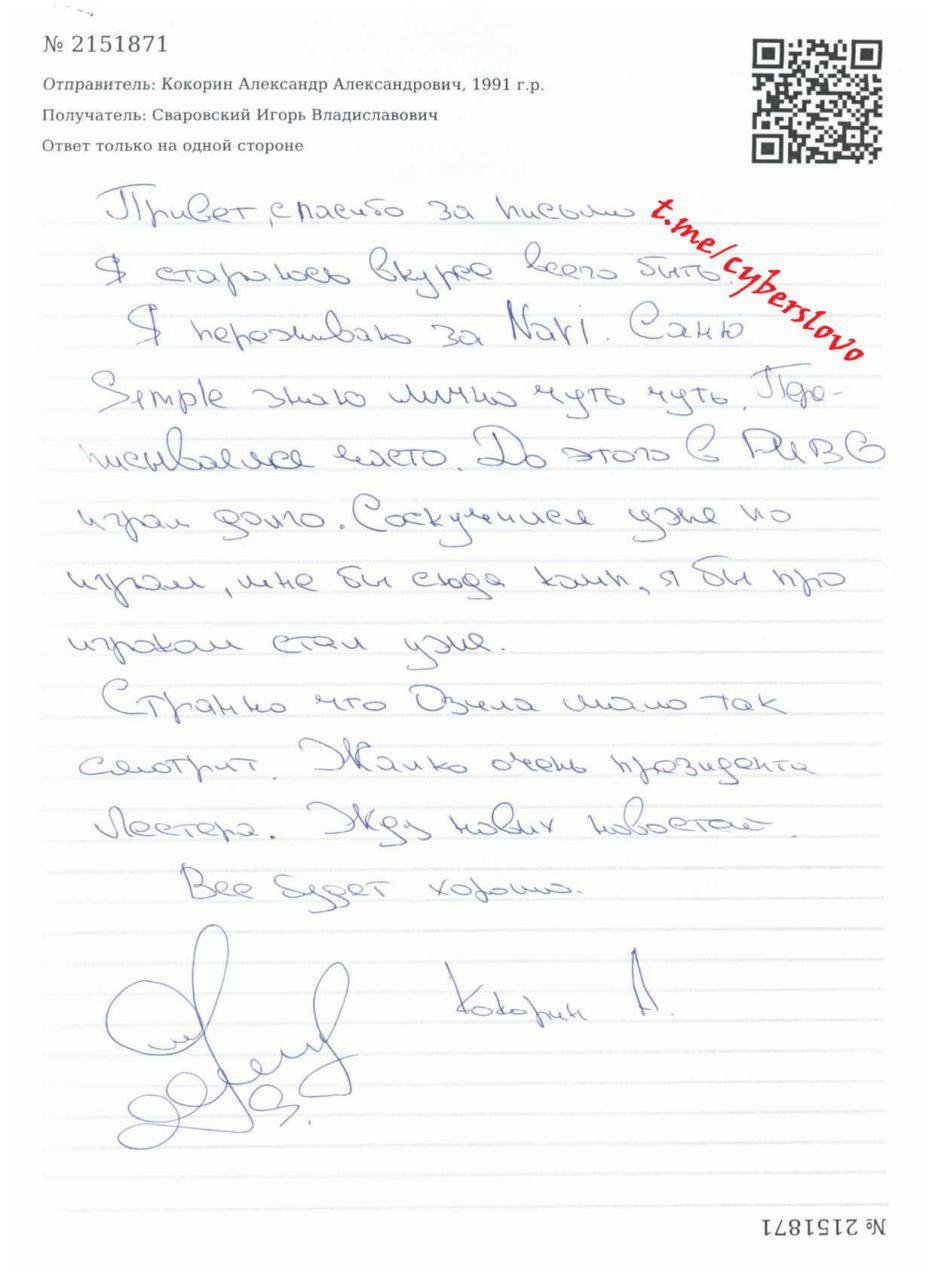 № 2151871
Отправитель: Кокорин Александр Александрович, 1991 г.р.
Получатель: Сваровский Игорь Владиславович
Ответ только на одной стороне
Привет, спасибо за письмо
t.me/cyberslovo
Я стараюсь вкурсе всего быть.
Я переживаю за Navi. Саню
Simple знаю лично чуть чуть. Пере-
писывался часто. До этого в PUBG
играл долго. Соскучился уже по
играм, мне бы сюда комп, я бы про
игракам стал уже.
Странно что Озила мало так
смотрит. Жалко очень президента
Лестера. Жду новых новостей.
Все будет хорошо.
Кокорин А.
№ 2151871